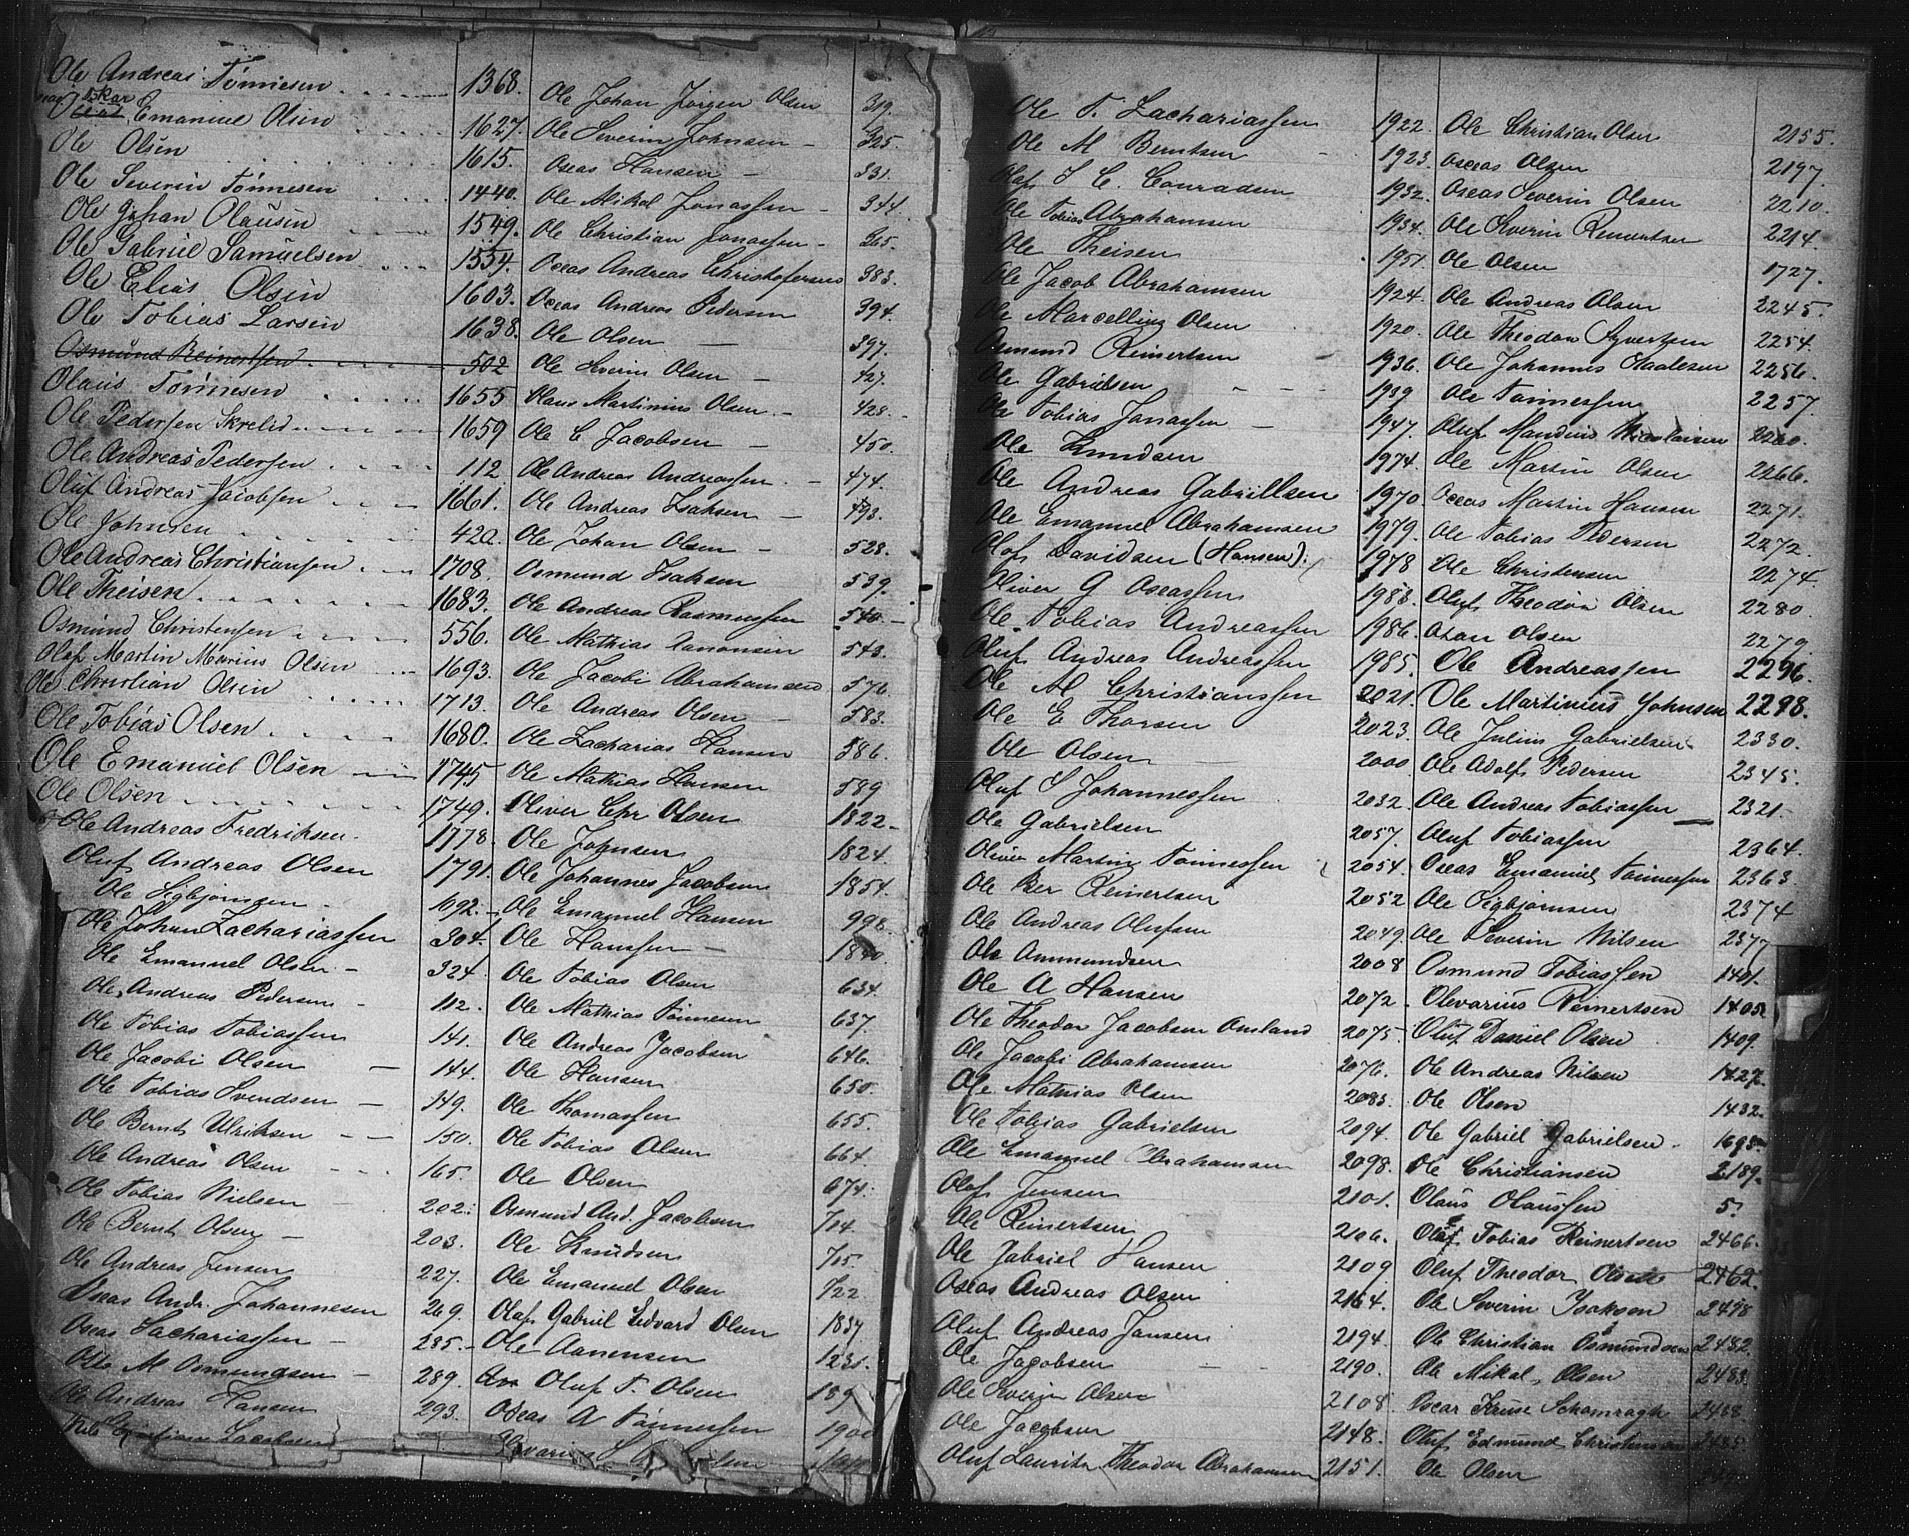 Ole Andreas Tønnesen 1368.
Oskar Emanuel Olsen 1627.
Ole Olsen 1615.
Ole Severin Tønnesen 1440.
Ole Johan Olausen 1549.
Ole Gabriel Samuelsen 1554.
Ole Elias Olsen 1603.
Ole Tobias Larsen 1638.
Osmund Reinertsen 502
Olaus Tønnesen 1655
Ole Pedersen Skrelid 1659
Ole Andreas Pedersen 112
Oluf Andreas Jacobsen 1661.
Ole Johnsen 420
Ole Andreas Christiansen 1708.
Ole Theisen 1683.
Osmund Christensen 556.
Olaf Martin Marius Olsen 1693.
Ole Christian Olsen 1713.
Ole Tobias Olsen 1680.
Ole Emanuel Olsen 1745
Ole Olsen 1749.
Ole Andreas Fredriksen 1778.
Oluf Andreas Olsen 1791.
Ole Sigbjørnsen 1692.
Ole Johan Zachariassen 304.
Ole Emanuel Olsen 324.
Ole Andreas Pedersen 112.
Ole Tobias Tobiassen 141.
Ole Jacobi Olsen 144.
Ole Tobias Svendsen 149.
Ole Bernt Ulriksen 150.
Ole Andreas Olsen 165.
Ole Tobias Nielsen 202.
Ole Bernt Olsen 203.
Ole Andreas Jensen 227.
Oseas Andr. Johannesen 269.
Oseas Zachariassen 285.
Otto M Osmundsen 289.
Ole Andreas Hansen 293.
Ole Johan Jørgen Olsen 319.
Ole Severin Johnsen 325.
Oseas Hansen 331.
Ole Mikal Jonassen 344.
Ole Christian Jonassen 365.
Oseas Andreas Christofersen 383.
Oseas Andreas Pedersen 394.
Ole Olsen 397.
Ole Severin Olsen 427.
Olaus Martinius Olsen 428.
Ole C Jacobsen 450.
Ole Andreas Andreassen 474.
Ole Andreas Isaksen 493.
Ole Johan Olsen 528.
Osmund Isaksen 539.
Ole Andreas Rasmussen 540.
Ole Mathias Aanonsen 543.
Ole Jacobi Abrahamsen 576.
Ole Andreas Olsen 583.
Ole Zacharias Hansen 586.
Ole Mathias Hansen 589
Oliver Chr Olsen 1822
Ole Johnsen 1824.
Ole Johannes Jacobsen 1854.
Ole Emanuel Hansen 998.
Ole Hanssen 1840.
Ole Tobias Olsen 634.
Ole Mathias Tønnesen 637.
Ole Andreas Jacobsen 646.
Ole Hansen 650.
Ole Thomassen 655.
Ole Tobias Olsen 664.
Ole Olsen 674.
Osmund And. Jacobsen 704.
Ole Knudsen 705.
Ole Emanuel Olsen 722
Olaf Gabriel Edvard Olsen 1837
Ole Aanensen 1231.
Oluf T. Olsen 189
Oseas A Tønnessen 1900
Ole T. Zachariassen 1922.
Ole M Berntsen 1923.
Olaf S C. Conradsen 1932.
Ole Tobias Abrahamsen 1934.
Ole Theisen 1951.
Ole Jacob Abrahamsen 1924.
Ole Marcelling Olsen 1920.
Osmund Reinertsen 1936.
Ole Gabrielsen 1939
Ole Tobias Jonassen 1947.
Ole Knudsen 1974.
Ole Andreas Gabrielsen 1970.
Ole Emanuel Abrahamsen 1979.
Olaf Davidsen (Hansen). 1978
Oliver G Oseassen 1983.
Ole Tobias Andreassen 1986.
Oluf Andreas Andreassen 1985.
Ole M Christianssen 2021.
Ole E Thorsen 2023.
Ole Olsen 2000
Oluf S Johannessen 2032.
Ole Gabrielsen 2057.
Oliver Martin Tønnessen 2054.
Ole Ber Reinertsen 2052
Ole Andreas Olufsen 2049.
Ole Ammundsen 2008
Ole A Hansen 2072.
Ole Theodor Jacobsen Omland 2075
Ole Jacobi Abrahamsen 2076.
Ole Mathias Olsen 2083.
Ole Tobias Gabrielsen 2094.
Ole Emanuel Abrahamsen 2098.
Olaf Jensen 2101.
Ole Reinertsen 2106.
Ole Gabriel Hansen 2109
Oseas Andreas Olsen 2164.
Oluf Andreas Jansen 2194.
Ole Jacobsen 2190.
Ole Severin Olsen 2108.
Ole Jacobsen 2148.
Oluf Lauritz Theodor Abrahamsen 2151.
Ole Christian Olsen 2155.
Oseas Olsen 2197.
Oseas Severin Olsen 2210.
Ole Severin Reinertsen 2214.
Ole Olsen 1727.
Ole Andreas Olsen 2245.
Ole Theodor Syvertsen 2254.
Ole Johannes Haalesen 2256.
Ole Tønnessen 2257.
Oluf Mandius Nicolaisen 2260.
Ole Martin Olsen 2266.
Oseas Martin Hansen 2271.
Ole Tobias Pedersen 2272.
Ole Christensen 2274.
Oluf Theodor Olsen 2280.
Osan Olsen 2279.
Ole Andreassen 2296.
Ole Martinius Johnsen 2298.
Ole Julius Gabrielsen 2330.
Ole Adolf Pedersen 2345.
Ole Andreas Tobiassen 2321.
Oluf Tobiassen 2364.
Oseas Emanuel Tønnessen 2363
Ole Sigbjørnsen 2374
Ole Severin Nilsen 2377
Osmund Tobiassen 1401.
Olevarius Reinertsen 1405
Oluf Daniel Olsen 1409.
Ole Andreas Nilsen 1427.
Ole Olsen 1432.
Ole Gabriel Gabrielsen 1695.
Ole Christiansen 2189.
Olaus Olaussen 5.
Olaf Tobias Reinertsen 2466.
Oluf Theodor 2462.
Ole Severin Isaksen 2478
Ole Christian Osmundsen 2482.
Ole Mikal Olsen 2483.
Oscar Kruse Schamragh 2488
Oluf Edmund Christensen 2485
Ole Olsen